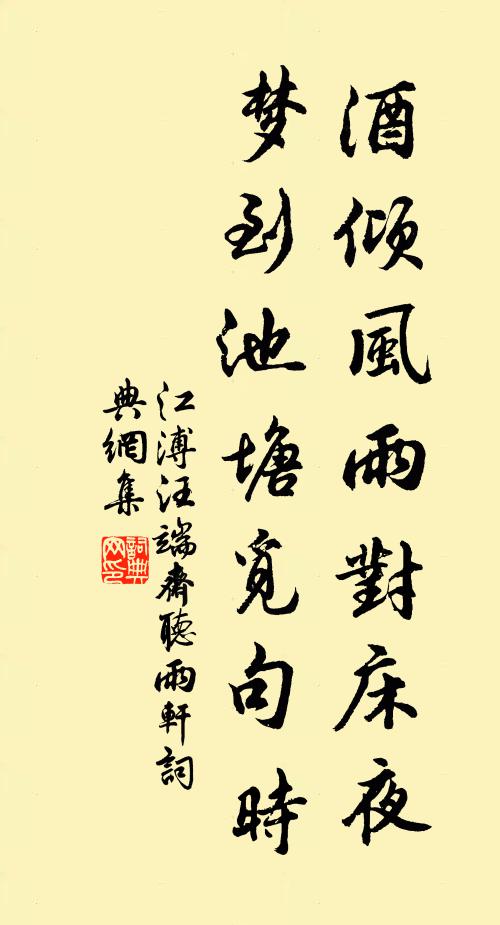 酒倾風雨對床夜
梦到池塘覓句時
江溥汪端齊聽雨軒詞
典網集
詞典
网印